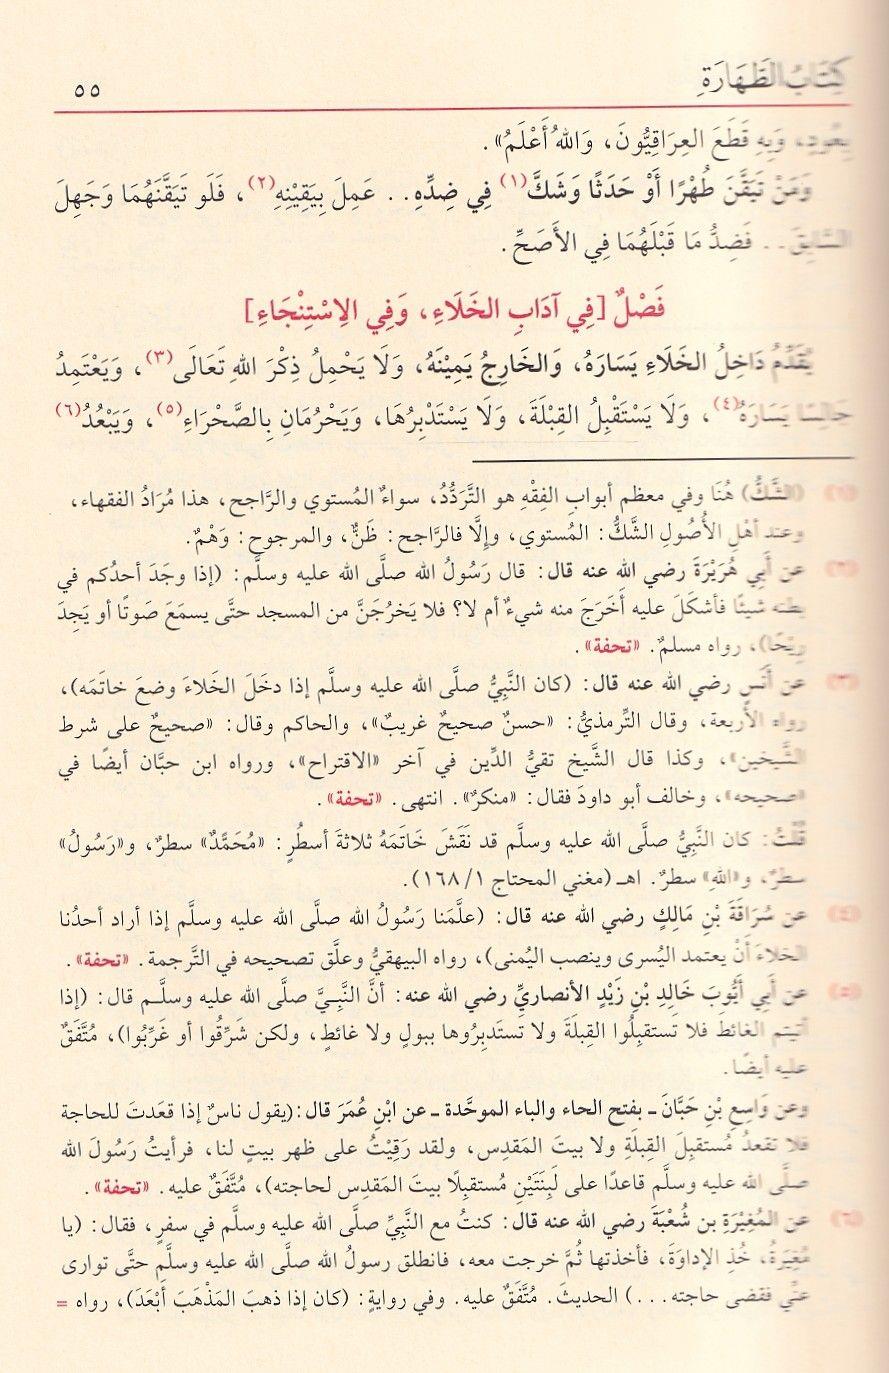 كِتَابُ الطَّهَارَةِ
٥٥
يَعُودِ، وَبِهِ قَطَعَ العِرَاقِيُّونَ، وَاللهُ أَعْلَمُ».
وَمَنْ تَيَقَّنَ طُهْرًا أَوْ حَدَثًا وَشَكَّ(١) فِي ضِدِّهِ.. عَمِلَ بِيَقِينِهِ(٢)، فَلَو تَيَقَّنَهُمَا وَجَهِلَ
السَّابِقَ.. فَضِدُّ مَا قَبْلَهُمَا فِي الأَصَحِّ.
فَصْلٌ [فِي آدَابِ الخَلَاءِ، وَفِي الِاسْتِنْجَاءِ]
يُقَدِّمُ دَاخِلُ الخَلَاءِ يَسَارَهُ، وَالخَارِجُ يَمِينَهُ، وَلَا يَحْمِلُ ذِكْرَ اللهِ تَعَالَى(٣)، وَيَعْتَمِدُ
جَالِسًا يَسَارَهُ(٤)، وَلَا يَسْتَقْبِلُ القِبْلَةَ، وَلَا يَسْتَدْبِرُهَا، وَيَحْرُمَانِ بِالصَّحْرَاءِ(٥)، وَيَبْعُدُ(٦)
(١) (الشَّكُّ) هُنَا وفي معظم أبوابِ الفِقْهِ هو التَّرَدُّدُ، سواءٌ المُستوي والرَّاجح، هذا مُرَادُ الفقهاء،
وعند أهْلِ الأُصُولِ الشَّكُّ: المُستوي، وإلَّا فالرَّاجح: ظَنٌّ، والمرجوح: وَهْمٌ.
(٢) عن أَبِي هُرَيْرَةَ رضي الله عنه قال: قال رَسُولُ الله صلَّى الله عليه وسلَّم: (إذا وجَدَ أحدُكم في
بطنه شيئًا فأشكَلَ عليه أَخَرَجَ منه شيءٌ أم لا؟ فلا يَخرُجَنَّ من المسجد حتَّى يسمَعَ صَوتًا أو يَجِدَ
رِيْحًا)، رواه مسلمٌ. «تحفة».
(٣) عن أَنَسٍ رضي الله عنه قال: (كان النَّبِيُّ صلَّى الله عليه وسلَّم إذا دخَلَ الخَلاءَ وضعَ خاتَمَه)،
رواه الأربعة، وقال التِّرمذيُّ: «حسنٌ صحيحٌ غريبٌ»، والحاكم وقال: «صحيحٌ على شرط
الشَّيخين»، وكذا قال الشَّيخ تقيُّ الدِّين في آخر «الاقتراح»، ورواه ابن حبَّان أيضًا في
«صحيحه»، وخالف أبو داودَ فقال: «منكرٌ». انتهى. «تحفة».
قُلْتُ: كان النَّبِيُّ صلَّى الله عليه وسلَّم قد نَقَشَ خَاتَمَهُ ثلاثةَ أسطُرٍ: «مُحَمَّدٌ» سطرٌ، و«رَسُولُ»
سطرٌ، و«اللهِ» سطرٌ. اهـ (مغني المحتاج ١/ ١٦٨).
(٤) عن سُرَاقَةَ بْنِ مَالِكٍ رضي الله عنه قال: (علَّمَنا رَسُولُ الله صلَّى الله عليه وسلَّم إذا أراد أحدُنا
الخلاءَ أنْ يعتمد اليُسرى وينصب اليُمنى)، رواه البيهقيُّ وعلَّق تصحيحه في التَّرجمة. «تحفة».
(٥) عن أَبِي أَيُّوبَ خَالِدِ بْنِ زَيْدٍ الأنصاريِّ رضي الله عنه: أنَّ النَّبِيَّ صلَّى الله عليه وسلَّم قال: (إذا
أتيتم الغائطَ فلا تستقبِلُوا القِبلَةَ ولا تستَدبِرُوها ببولٍ ولا غائطٍ، ولكن شَرِّقُوا أو غَرِّبُوا)، مُتَّفَقٌ
عليه أيضًا.
وعن وَاسِعِ بْنِ حَبَّانَ ـ بفتح الحاء والباء الموحَّدة ـ عن ابْنِ عُمَرَ قال: (يقول ناسٌ إذا قعَدتَ للحاجة
فلا تقعدْ مُستقبِلَ القِبلَةِ ولا بيتَ المَقدِس، ولقد رَقِيْتُ على ظهر بيتٍ لنا، فرأيتُ رَسُولَ الله
صلَّى الله عليه وسلَّم قاعدًا على لَبِنَتَيْنِ مُستقبِلًا بيتَ المَقدِس لحاجته)، مُتَّفَقٌ عليه. «تحفة».
(٦) عن المُغِيْرَةِ بن شُعْبَةَ رضي الله عنه قال: كنتُ مع النَّبِيِّ صلَّى الله عليه وسلَّم في سفرٍ، فقال: (يا
مُغِيَرةُ، خُذِ الإداوَةَ، فأخذتها ثُمَّ خرجت معه، فانطلق رسولُ الله صلَّى الله عليه وسلَّم حتَّى توارى
عنِّي فقضى حاجته...) الحديثَ. مُتَّفَقٌ عليه. وفي روايةٍ: (كان إذا ذهبَ المَذْهَبَ أبْعَدَ)، رواه =